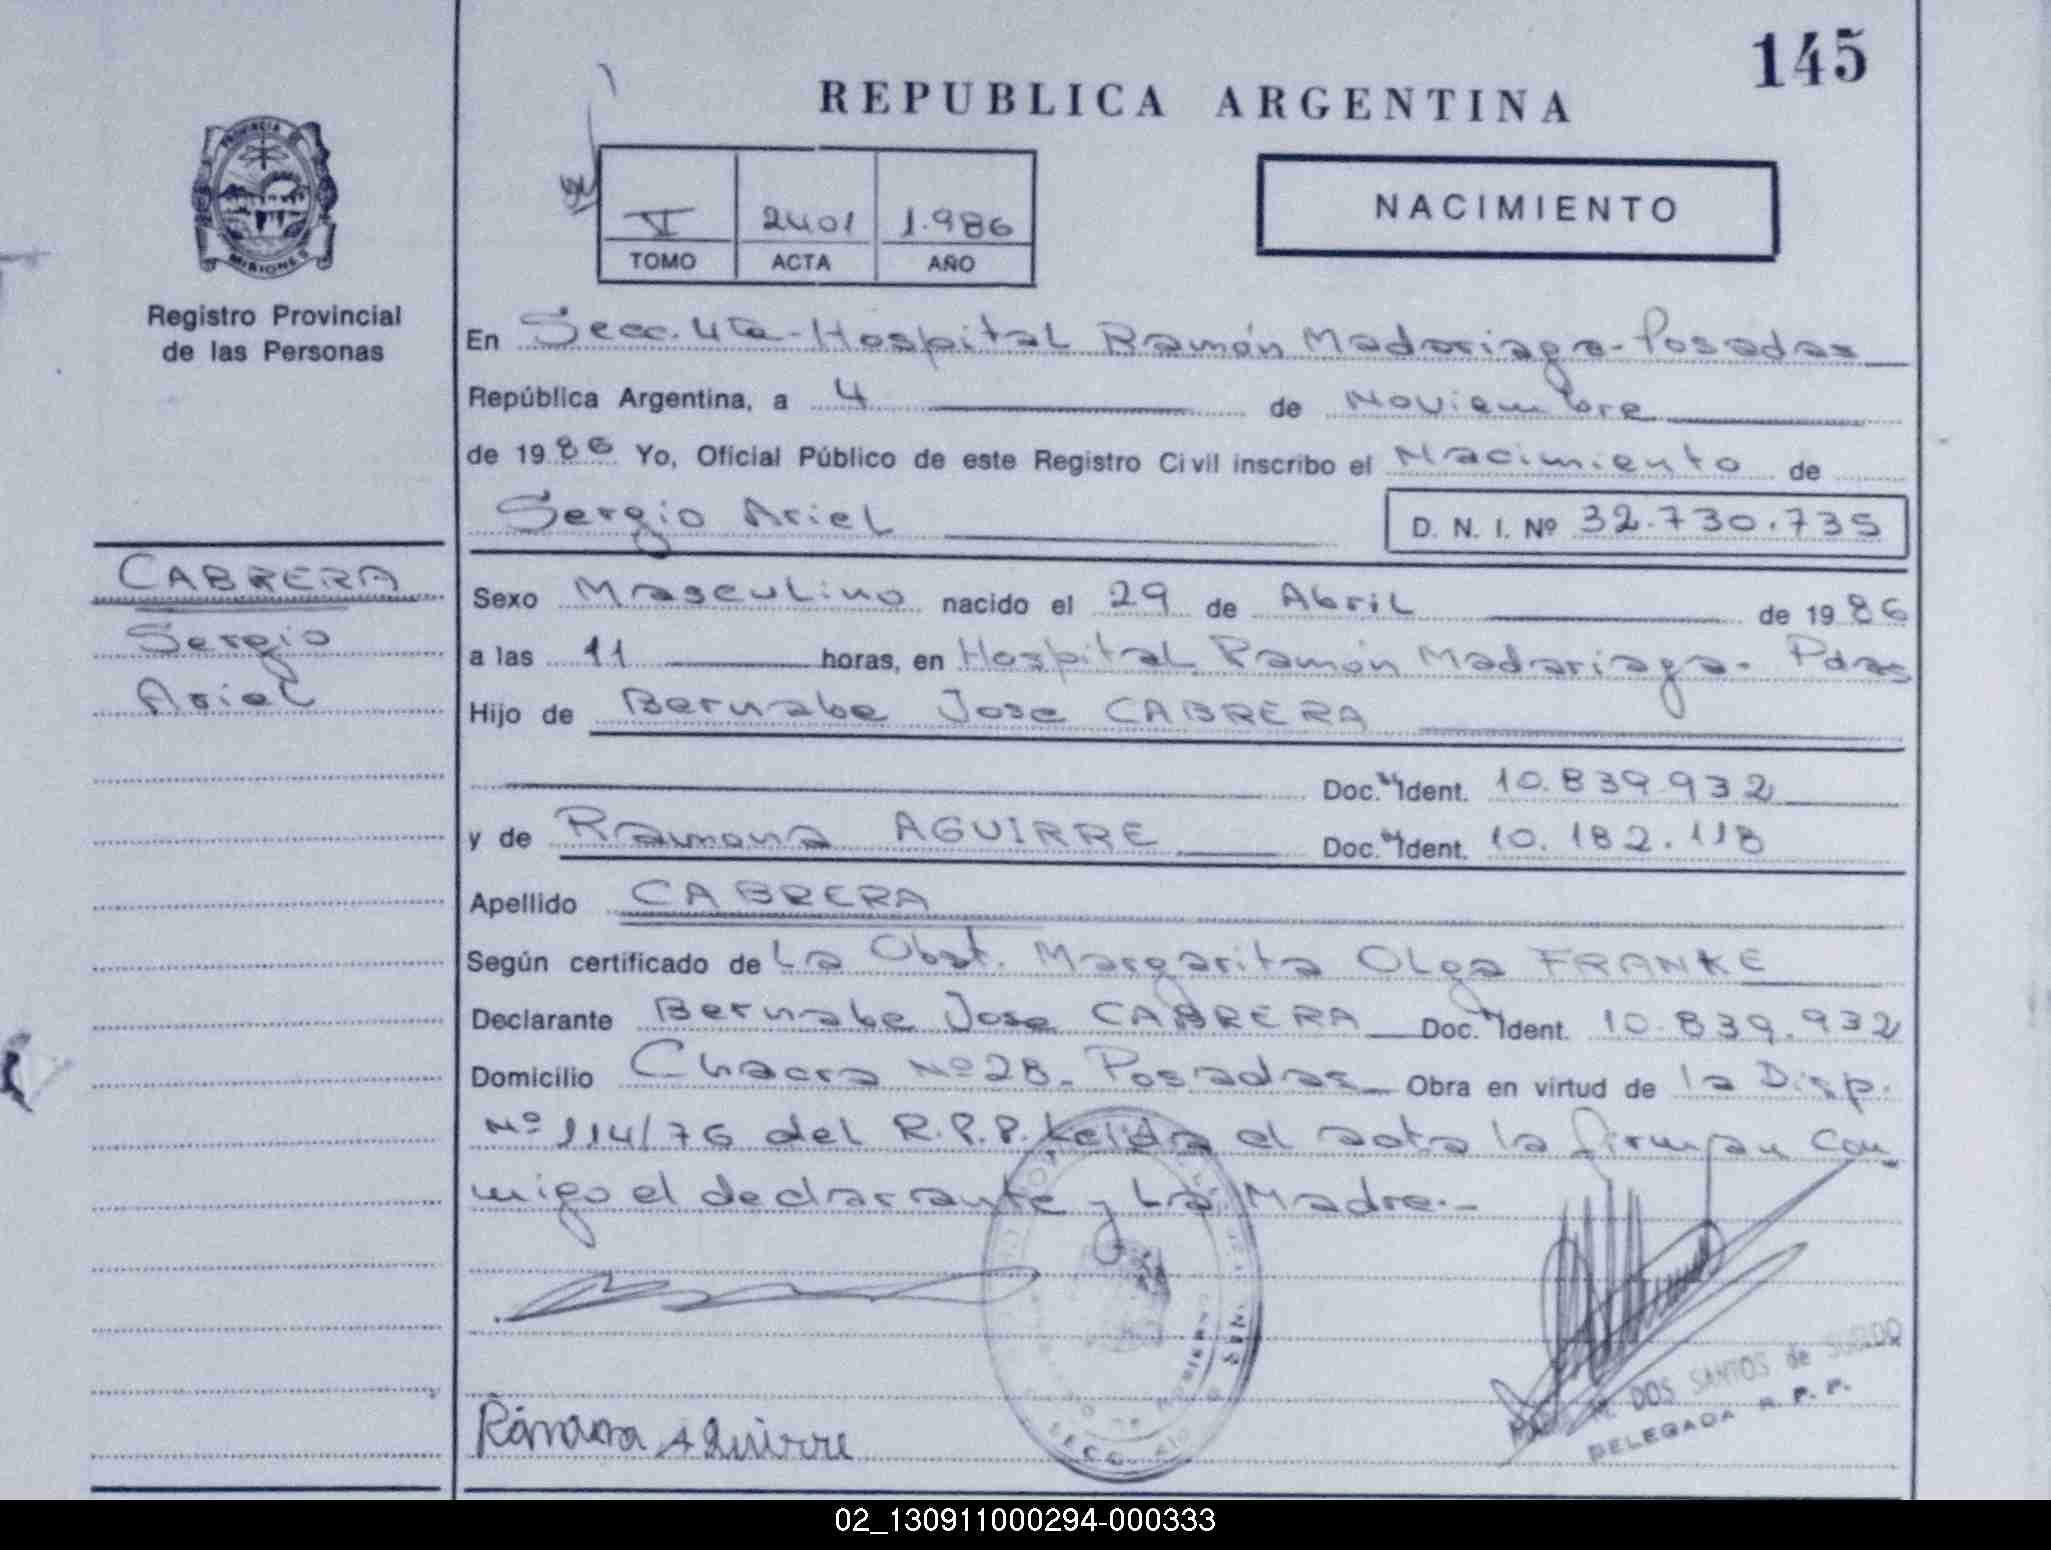 145
REPUBLICA ARGENTINA
PROVINCIA
MISIONES
Registro Provincial
de las Personas
VI 2401 1.986
TOMO ACTA AÑO
NACIMIENTO
En Secc. 4ta - Hospital Ramón Madariaga - Posadas
República Argentina, a 4 de Noviembre
de 1986 Yo, Oficial Público de este Registro Civil inscribo el Nacimiento de
Sergio Ariel D. N. I. Nº 32.730.735
CABRERA
Sergio
Ariel
Sexo Masculino nacido el 29 de Abril de 1986
a las 11 horas, en Hospital Ramón Madariaga - Pdas
Hijo de Bernabe Jose CABRERA
Doc. Ident. 10.839.932
y de Ramona AGUIRRE Doc. Ident. 10.182.118
Apellido CABRERA
Según certificado de La Obst. Margarita Olga FRANKE
Declarante Bernabe Jose CABRERA Doc. Ident. 10.839.932
Domicilio Chacra Nº 28 - Posadas Obra en virtud de la Disp.
Nº 114/76 del R.P.P. Leida el acta la firman con
migo el declarante y La Madre.-
Ramona Aguirre
DOS SANTOS de
DELEGADA R. P. P.
02_130911000294-000333